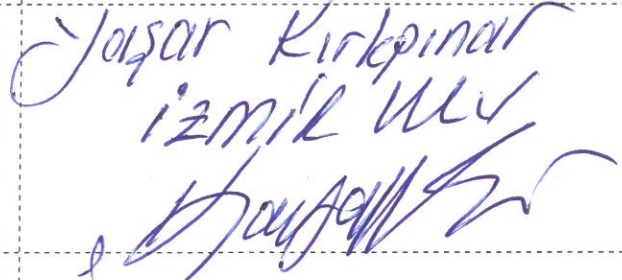 Yaşar Kırkpınar
İZMİR MV